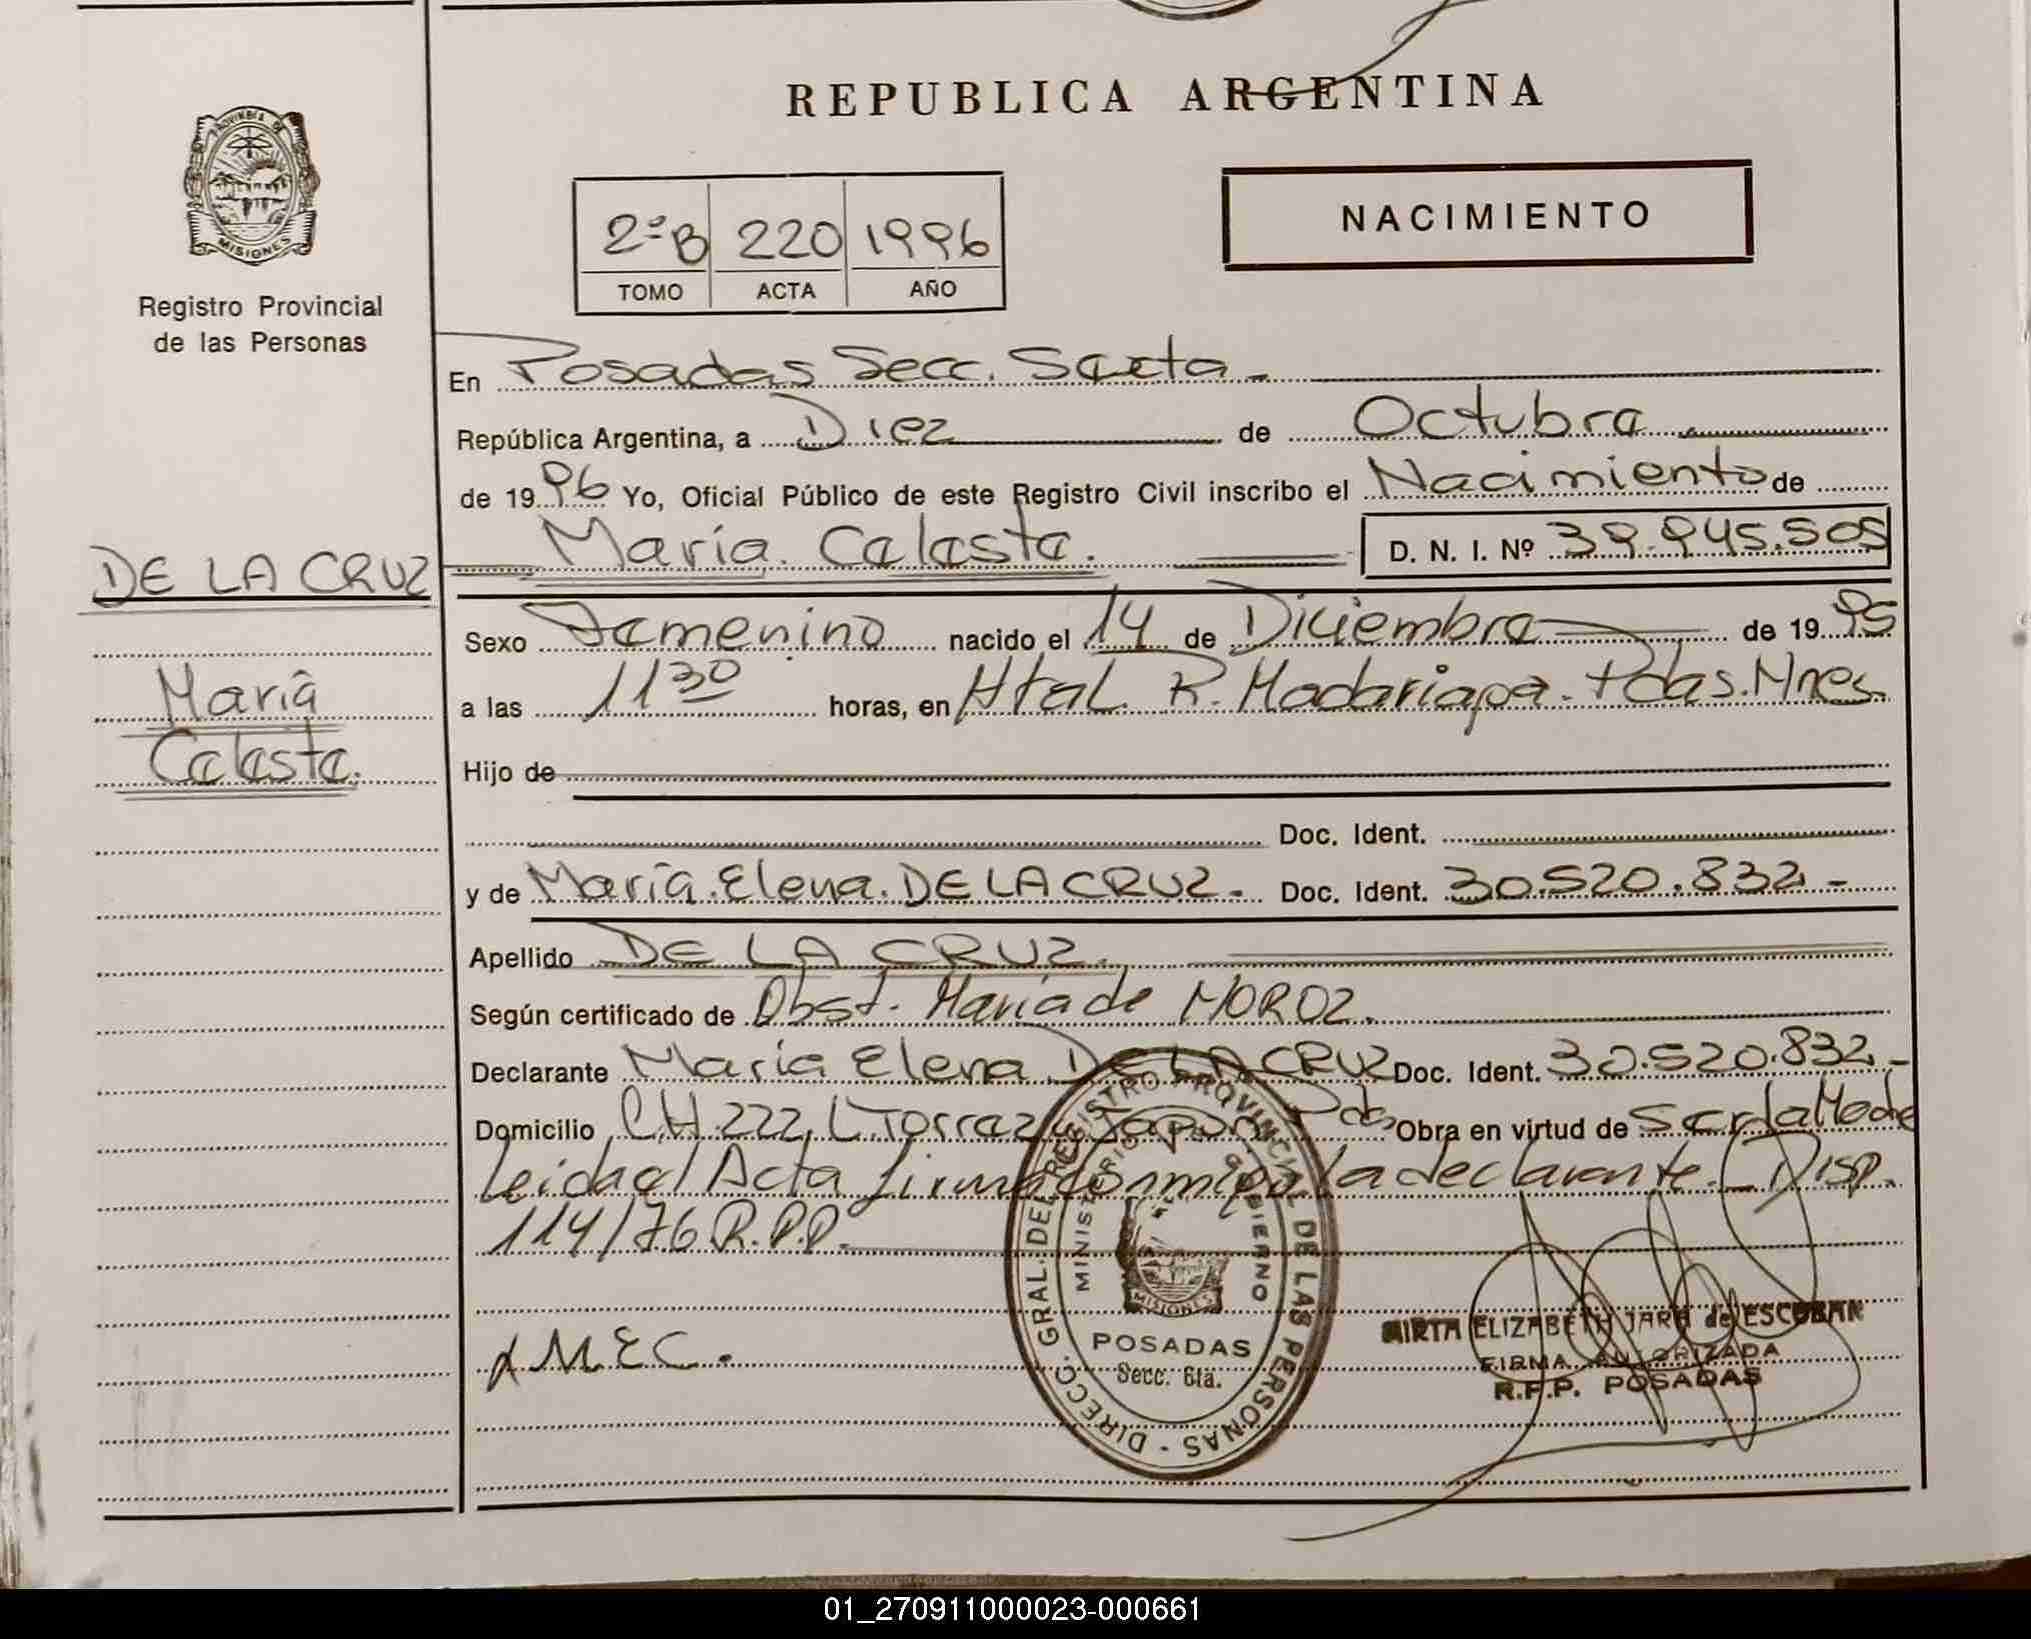 REPUBLICA ARGENTINA
PROVINCIA DE
MISIONES
Registro Provincial
de las Personas
2ºB 220 1996
TOMO ACTA AÑO
NACIMIENTO
En Posadas Secc. Sexta.-
República Argentina, a Diez de Octubre
de 1996 Yo, Oficial Público de este Registro Civil inscribo el Nacimiento de
María Celeste. D. N. I. Nº 39.945.505
DE LA CRUZ
María
Celeste.
Sexo Femenino nacido el 14 de Diciembre de 1995
a las 11 30 horas, en Htal. R. Madariaga. Pdas. Mnes.
Hijo de
Doc. Ident.
y de María Elena DE LA CRUZ.- Doc. Ident. 30.520.832.-
Apellido DE LA CRUZ.
Según certificado de Obst. María de MOROZ.
Declarante María Elena DE LA CRUZ Doc. Ident. 30.520.832.-
Domicilio CH. 222, L. Torraz Pdas Obra en virtud de ser la Madre
Leida el Acta firma conmigo la declarante.- Disp.
114/76 R.P.P.
MEC.
DIRECC. GRAL. DEL REGISTRO PROVINCIAL DE LAS PERSONAS -
MINISTERIO DE GOBIERNO
MISIONES
POSADAS
Secc. 6ta.
MIRTA ELIZABETH JARA de ESCOBAR
FIRMA AUTORIZADA
R.P.P. POSADAS
01_270911000023-000661